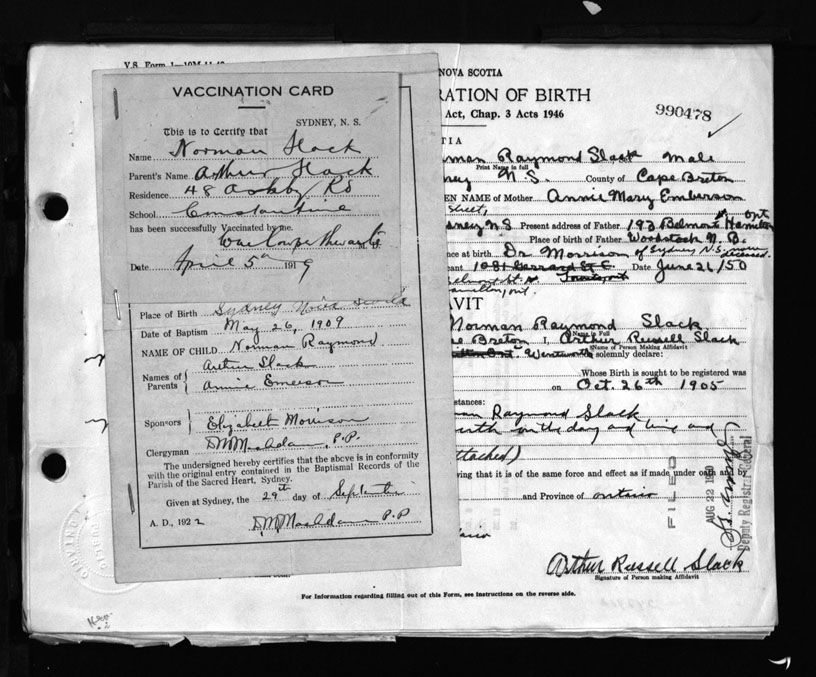 V.S. Form 1—10M-11-49
VACCINATION CARD
SYDNEY, N. S.
This is to Certify that
Name Norman Slack
Parent's Name Arthur Slack
Residence 48 Ashby Rd
School Constantine
has been successfully Vaccinated by me.
M.D.
Date April 5th 1919
Place of Birth Sydney Nova Scotia
Date of Baptism May 26, 1909
NAME OF CHILD Norman Raymond
Names of Parents Arthur Slack
Annie Emerson
Sponsors Elizabeth Morrison
Clergyman P.P.
The undersigned hereby certifies that the above is in conformity
with the original entry contained in the Baptismal Records of the
Parish of the Sacred Heart, Sydney.
Given at Sydney, the 29th day of
A. D., 1922 P.P
NOVA SCOTIA
RATION OF BIRTH
Act, Chap. 3 Acts 1946
990478
TIA
man Raymond Slack Male
Print Name in full
ney N.S. County of Cape Breton
EN NAME of Mother Annie Mary Emberson
Street,
dney N.S Present address of Father 193 Belmont Hamilton Ont
Place of birth of Father Woodstock N.B.
nce at birth Dr Morrison of Sydney, N.S. now deceased.
ant 1081 Gerrard St E Date June 21/50
Toronto, Ont
amilton, Ont.
AVIT
Norman Raymond Slack
Name in Full
e Breton I, Arthur Russell Slack
Name of Person Making Affidavit
Wentworth solemnly declare:
Whose Birth is sought to be registered was
on Oct. 26th 1905
stances:
man Raymond Slack
attached)
ving that it is of the same force and effect as if made under oath and by
and Province of Ontario
FILED
AUG 22 1950
Deputy Registrar General
Arthur Russell Slack
Signature of Person making Affidavit
For Information regarding filling out of this Form, see instructions on the reverse side.